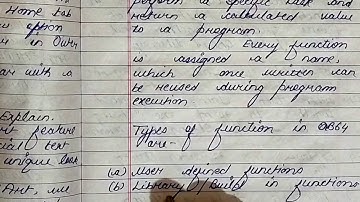 perform a specific task and
return a calculated value
to a program.
Every function
is assigned a name,
which once written can
be reused during program
execution
Types of function in QB64
are -
(a) User defined functions
(b) Library / Built in functions
Home tab
option
in
with a
Explain.
feature
text
unique look
Art, we